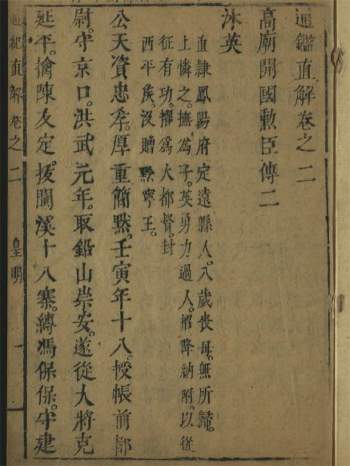 通鑑直解卷之二
高廟開國勲臣傳二
沐英
直隷鳳陽府定遠縣人八歲喪母無所歸
上憐之撫爲子英勇力過人招降納附以從
征有功擢爲大都督封
西平侯沒贈黔寧王
公天資忠孝厚重簡黙壬寅年十八授帳前都
尉守京口洪武元年取鉛山崇安遂從大將克
延平擒陳友定援閩溪十八寨縛馮保保守建
直解卷之二
皇明
一